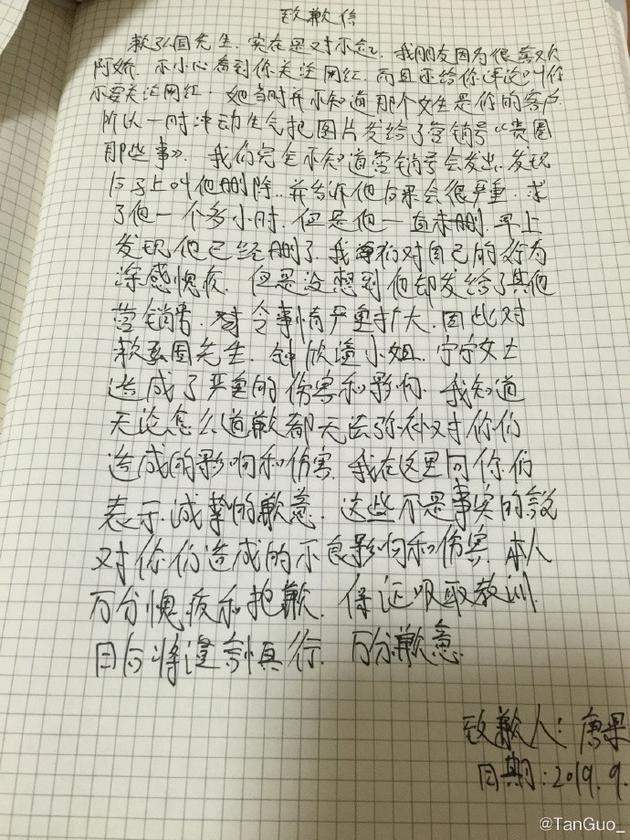 致歉信
赖弘国先生.实在是对不起.我朋友因为很喜欢
阿娇.不小心看到你关注网红.而且还给你评论叫你
不要关注网红.她当时并不知道那个女生是你的客户.
所以一时冲动生气把图片发给了营销号《贵圈
那些事》.我们完全不知道营销号会发出.发现
后马上叫他删除.并告诉他后果会很严重.求
了他一个多小时.但是他一直未删.早上
发现他已经删了.我们对自己的行为
深感愧疚.但是没想到他却发给了其他
营销号.令事情严重扩大.因此对
赖弘国先生.钟欣潼小姐.宁宁女士
造成了严重的伤害和影响.我知道
无论怎么道歉都无法弥补对你们
造成的影响和伤害.我在这里向你们
表示诚挚的歉意.这些不是事实的言论
对你们造成的不良影响和伤害.本人
万分愧疚和抱歉.保证吸取教训.
日后将谨言慎行.万分歉意.
致歉人:唐果
日期:2019.9.
@TanGuo_